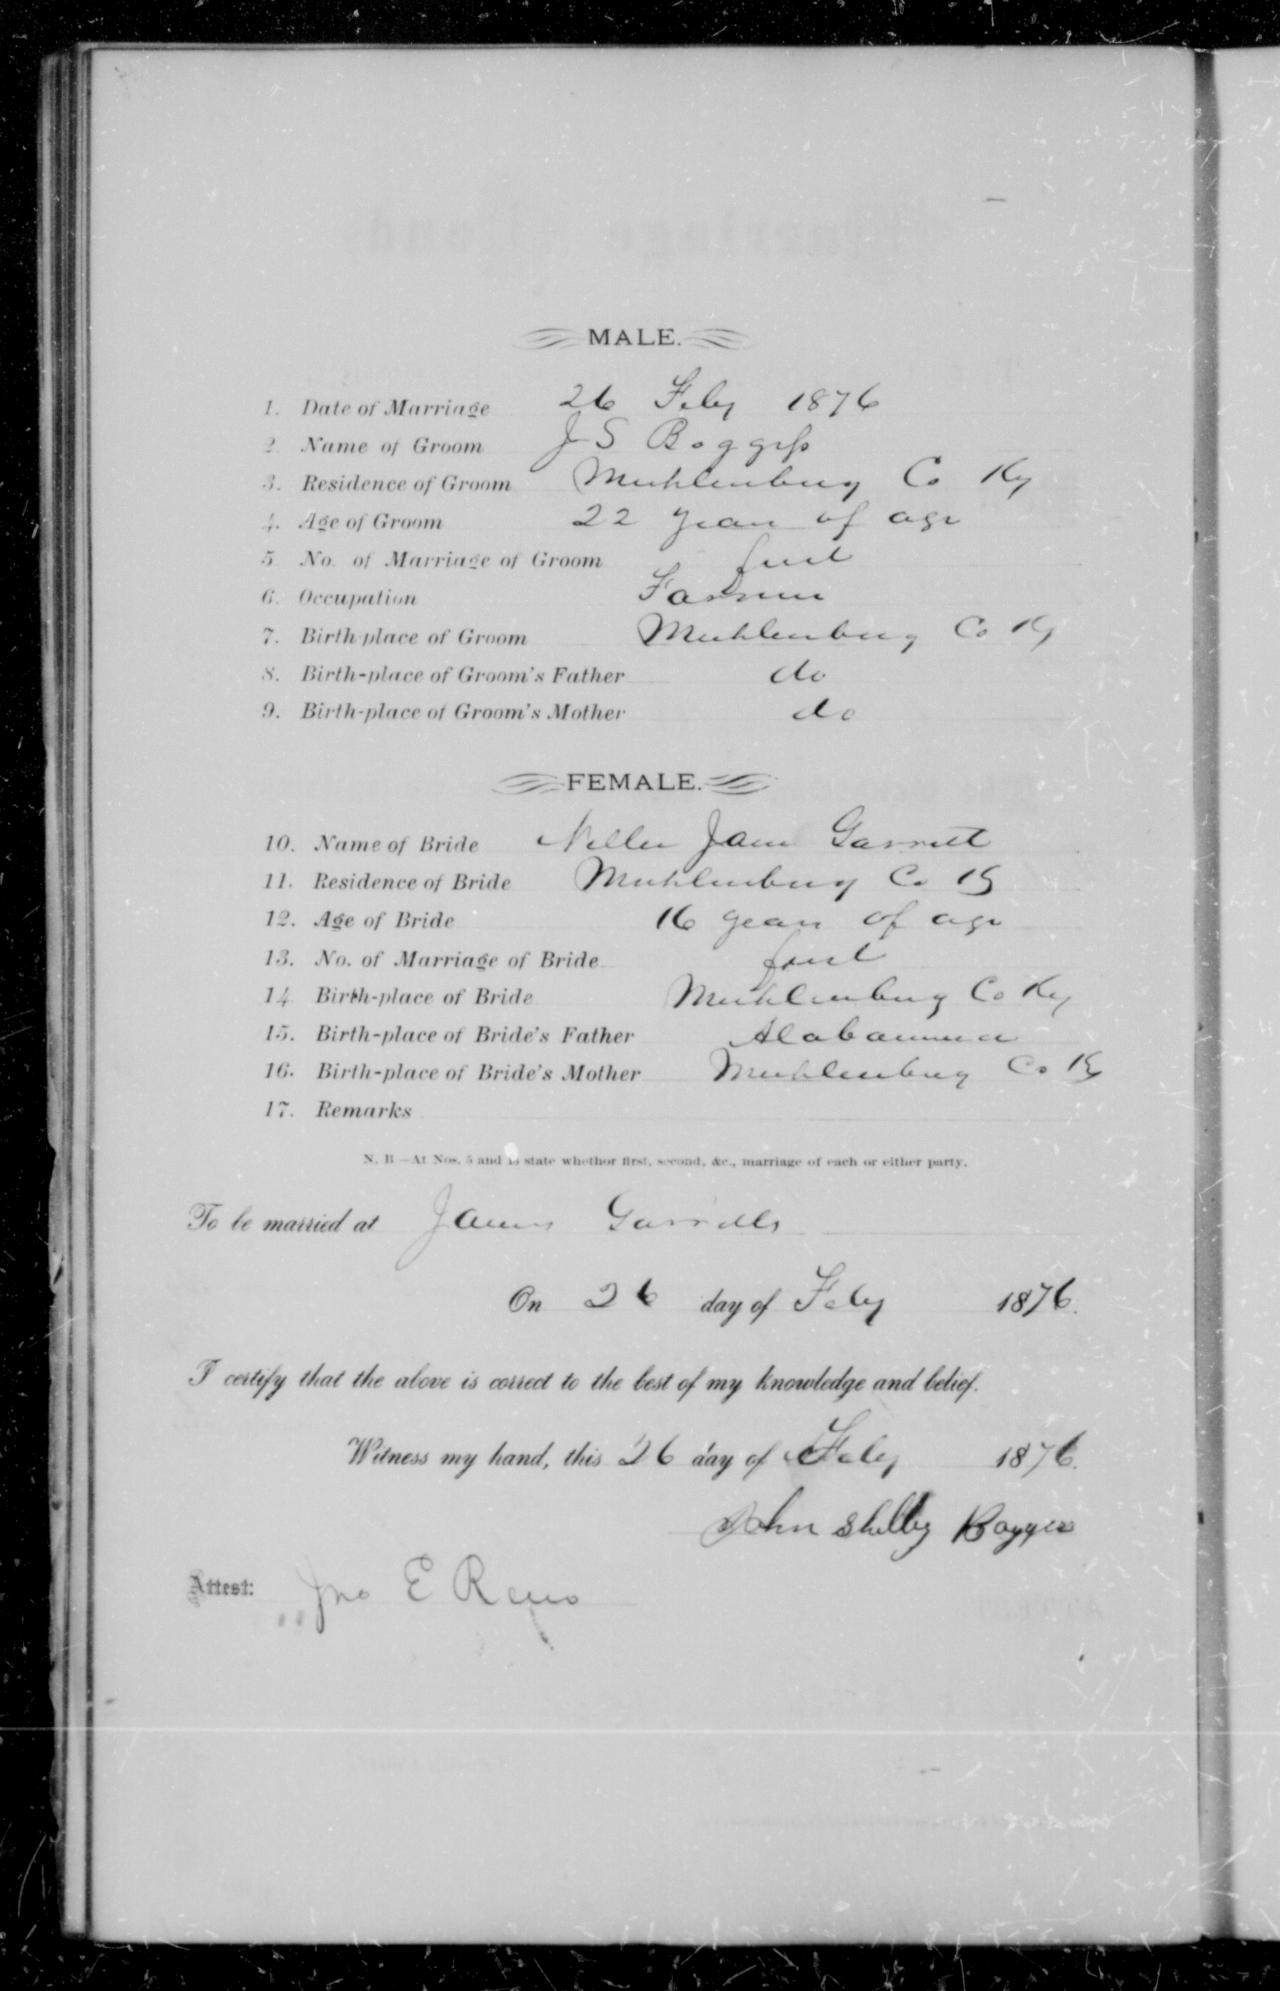 MALE.
1. Date of Marriage 26 Feby 1876
2. Name of Groom J S Boggess
3. Residence of Groom Muhlenburg Co Ky
4. Age of Groom 22 years of age
5. No. of Marriage of Groom first
6. Occupation Farmer
7. Birth-place of Groom Muhlenburg Co Ky
8. Birth-place of Groom's Father do
9. Birth-place of Groom's Mother do
FEMALE.
10. Name of Bride Nellie Jane Garrett
11. Residence of Bride Muhlenburg Co Ky
12. Age of Bride 16 years of age
13. No. of Marriage of Bride first
14. Birth-place of Bride Muhlenburg Co Ky
15. Birth-place of Bride's Father Alabamma
16. Birth-place of Bride's Mother Muhlenburg Co Ky
17. Remarks
N. B —At Nos. 5 and 13 state whethor first, second, &c., marriage of each or either party.
To be married at James Garretts
On 26 day of Feby 1876.
I certify that the above is correct to the best of my knowledge and belief.
Witness my hand, this 26 day of Feby 1876.
John Shelby Bogges
Attest: Jno E Reno